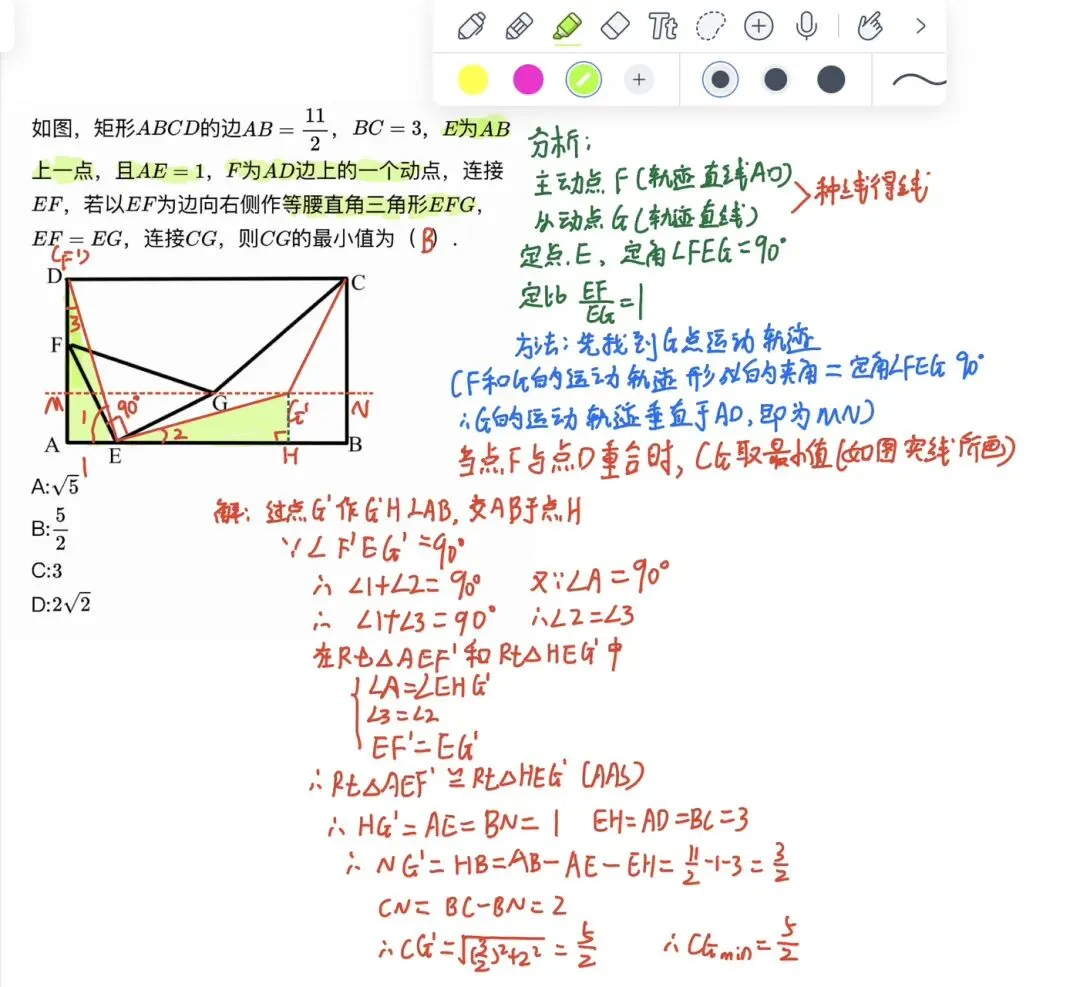 Tt
如图，矩形ABCD的边AB = 11/2，BC = 3，E为AB
上一点，且AE = 1，F为AD边上的一个动点，连接
EF，若以EF为边向右侧作等腰直角三角形EFG，
EF = EG，连接CG，则CG的最小值为（ B ）.
分析：
主动点 F (轨迹 直线AD)
从动点 G (轨迹直线)
种线得线
定点E、定角∠FEG=90°
定比 EF/EG=1
方法：先找到G点运动轨迹
(F和G的运动轨迹形成的夹角=定角∠FEG 90°
∴G的运动轨迹垂直于AD，即为MN)
当点F与点D重合时，CG取最小值(如图实线所画)
(F')
D
C
3
F
M
G
G'
N
1
90°
2
A
E
H
B
1
A:√5
B:5/2
C:3
D:2√2
解：过点G'作G'H⊥AB，交AB于点H
∵∠F'EG'=90°
∴ ∠1+∠2=90° 又∵∠A=90°
∴ ∠1+∠3=90° ∴∠2=∠3
在Rt△AEF'和Rt△HEG'中
∠A=∠EHG'
∠3=∠2
EF'=EG'
∴Rt△AEF'≌Rt△HEG'(AAS)
∴HG'=AE=BN=1 EH=AD=BC=3
∴NG'=HB=AB-AE-EH=11/2-1-3=3/2
CN=BC-BN=2
∴CG'=√(3/2)²+2²=5/2 ∴CGmin=5/2